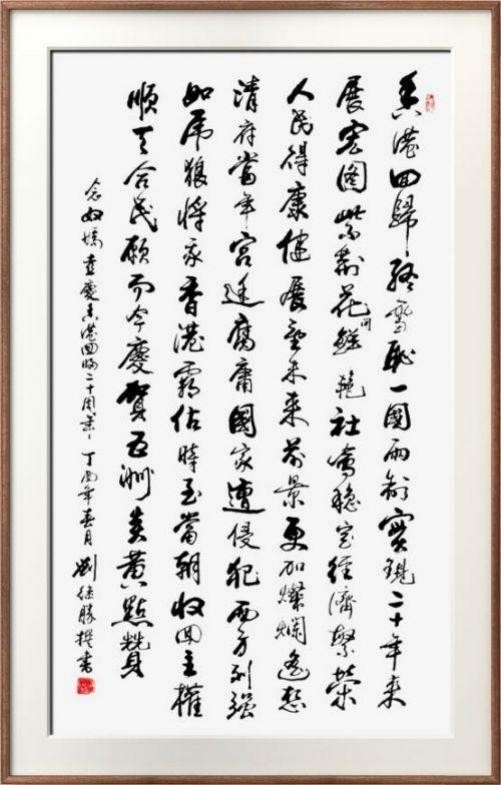 香港回歸終雪恥一國兩制實現二十年來
展宏圖紫荊花開鮮艷社會穩定經濟繁榮
人民得康健展望未來前景更加燦爛遙想
清府當年宮廷腐庸國家遭侵犯西方列強
如虎狼將我香港霸佔時至當朝收回主權
順天合民願而今慶賀五洲炎黃點贊
念奴嬌喜慶香港回歸二十周年丁酉年春月劉勝撰書